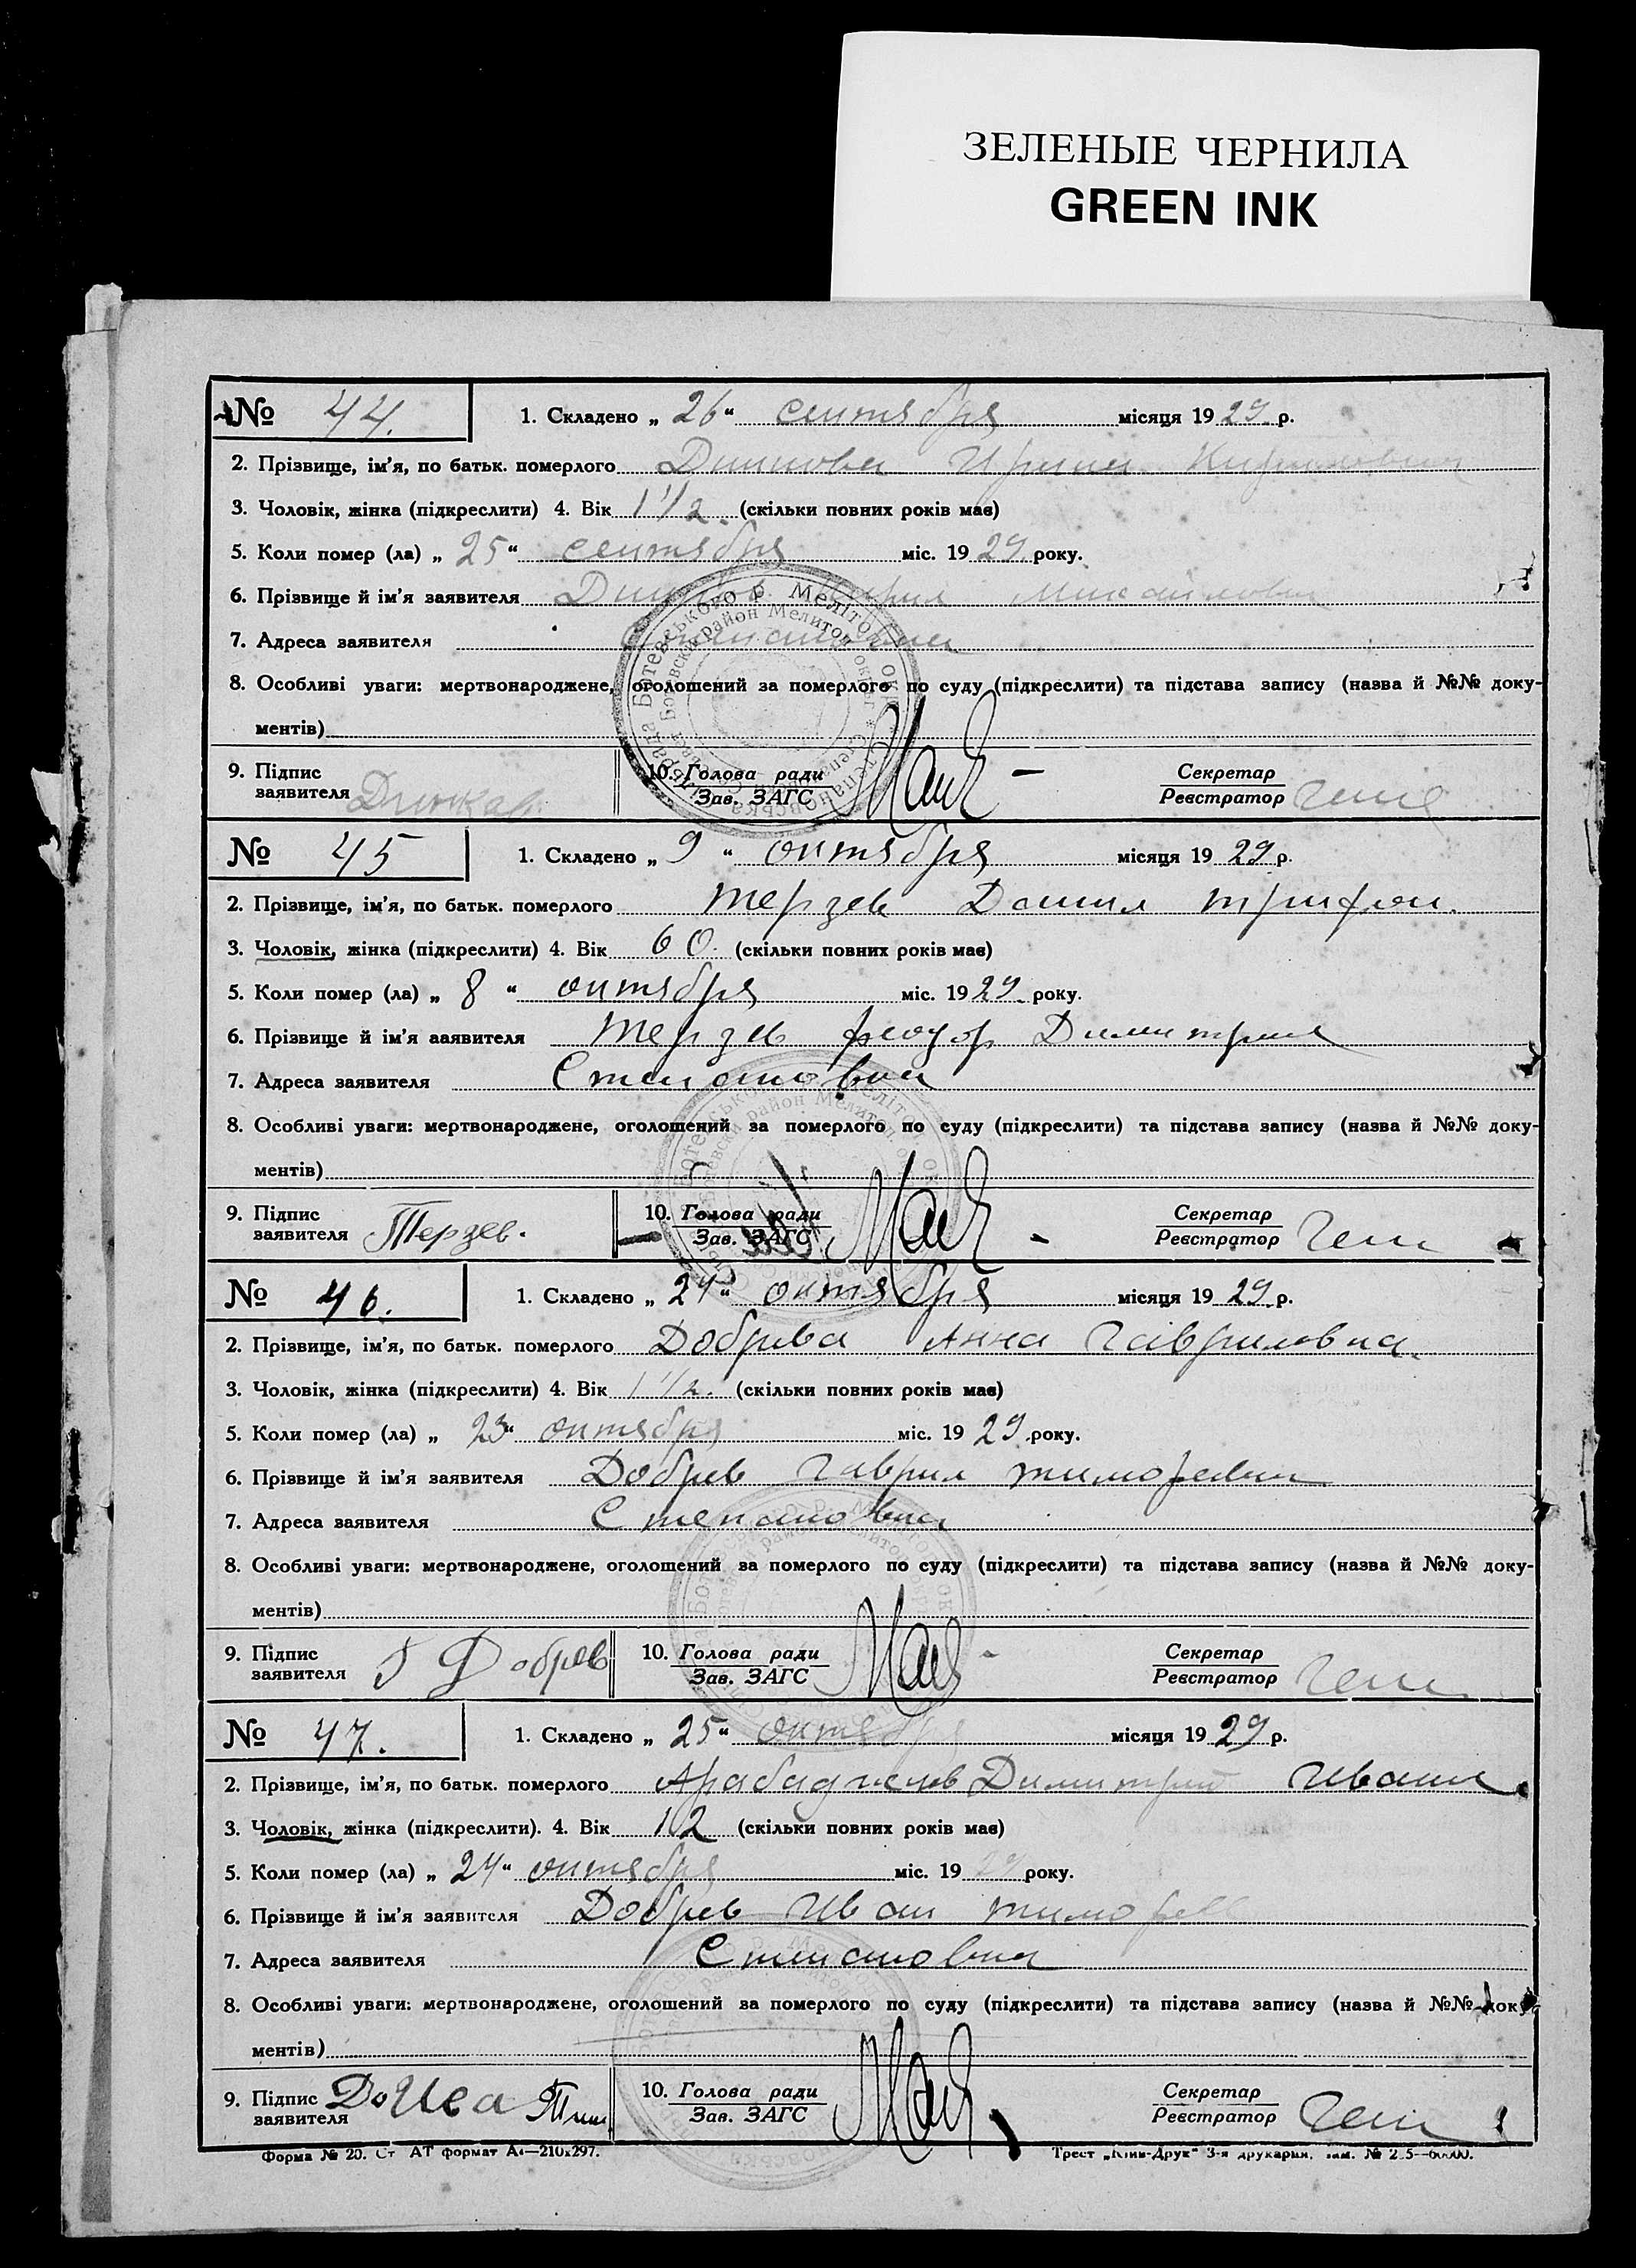 ЗЕЛЕНЫЕ ЧЕРНИЛА
GREEN INK
№ 44. 1. Складено „ 26 “ сентября місяця 19 29. р.
2. Прізвище, ім’я, по батьк. померлого Ирина
3. Чоловік, жінка (підкреслити) 4. Вік 1 1/2. (скільки повних років має)
5. Коли помер (ла) „ 25 “ сентября міс. 19 29. року.
6. Прізвище й ім’я заявителя
7. Адреса заявителя Степановка
8. Особливі уваги: мертвонароджене, оголошений за померлого по суду (підкреслити) та підстава запису (назва й №№ доку-
ментів)
9. Підпис заявителя 10. Голова ради Зав. ЗАГС Секретар Реєстратор
№ 45 1. Складено „ 9 “ октября місяця 19 29 р.
2. Прізвище, ім’я, по батьк. померлого Терзев Данил Трифон.
3. Чоловік, жінка (підкреслити) 4. Вік 60. (скільки повних років має)
5. Коли помер (ла) „ 8 “ октября міс. 19 29. року.
6. Прізвище й ім’я заявителя Терзев Феодор Димитрие
7. Адреса заявителя Степановка
8. Особливі уваги: мертвонароджене, оголошений за померлого по суду (підкреслити) та підстава запису (назва й №№ доку-
ментів)
9. Підпис заявителя Терзев. 10. Голова ради Зав. ЗАГС Секретар Реєстратор
№ 46. 1. Складено „ 24 “ октября місяця 19 29. р.
2. Прізвище, ім’я, по батьк. померлого Добрева Анна Гавриловна.
3. Чоловік, жінка (підкреслити) 4. Вік 1 1/2. (скільки повних років має)
5. Коли помер (ла) „ 23 “ октября міс. 19 29. року.
6. Прізвище й ім’я заявителя Добрев Гаврил Тимофевич
7. Адреса заявителя Степановка
8. Особливі уваги: мертвонароджене, оголошений за померлого по суду (підкреслити) та підстава запису (назва й №№ доку-
ментів)
9. Підпис заявителя Добрев 10. Голова ради Зав. ЗАГС Секретар Реєстратор
№ 47. 1. Складено „ 25 “ октября місяця 19 29 р.
2. Прізвище, ім’я, по батьк. померлого Арабаджиев Димитрий Иван
3. Чоловік, жінка (підкреслити). 4. Вік 12 (скільки повних років має)
5. Коли помер (ла) „ 24 “ октября міс. 19 29 року.
6. Прізвище й ім’я заявителя Добрев Иван Тимофев
7. Адреса заявителя Степановка
8. Особливі уваги: мертвонароджене, оголошений за померлого по суду (підкреслити) та підстава запису (назва й №№ доку-
ментів)
9. Підпис заявителя 10. Голова ради Зав. ЗАГС Секретар Реєстратор
Форма № 20. Ст АТ формат А4—210х297. Трест „Київ-Друк“ 3-я друкарня,